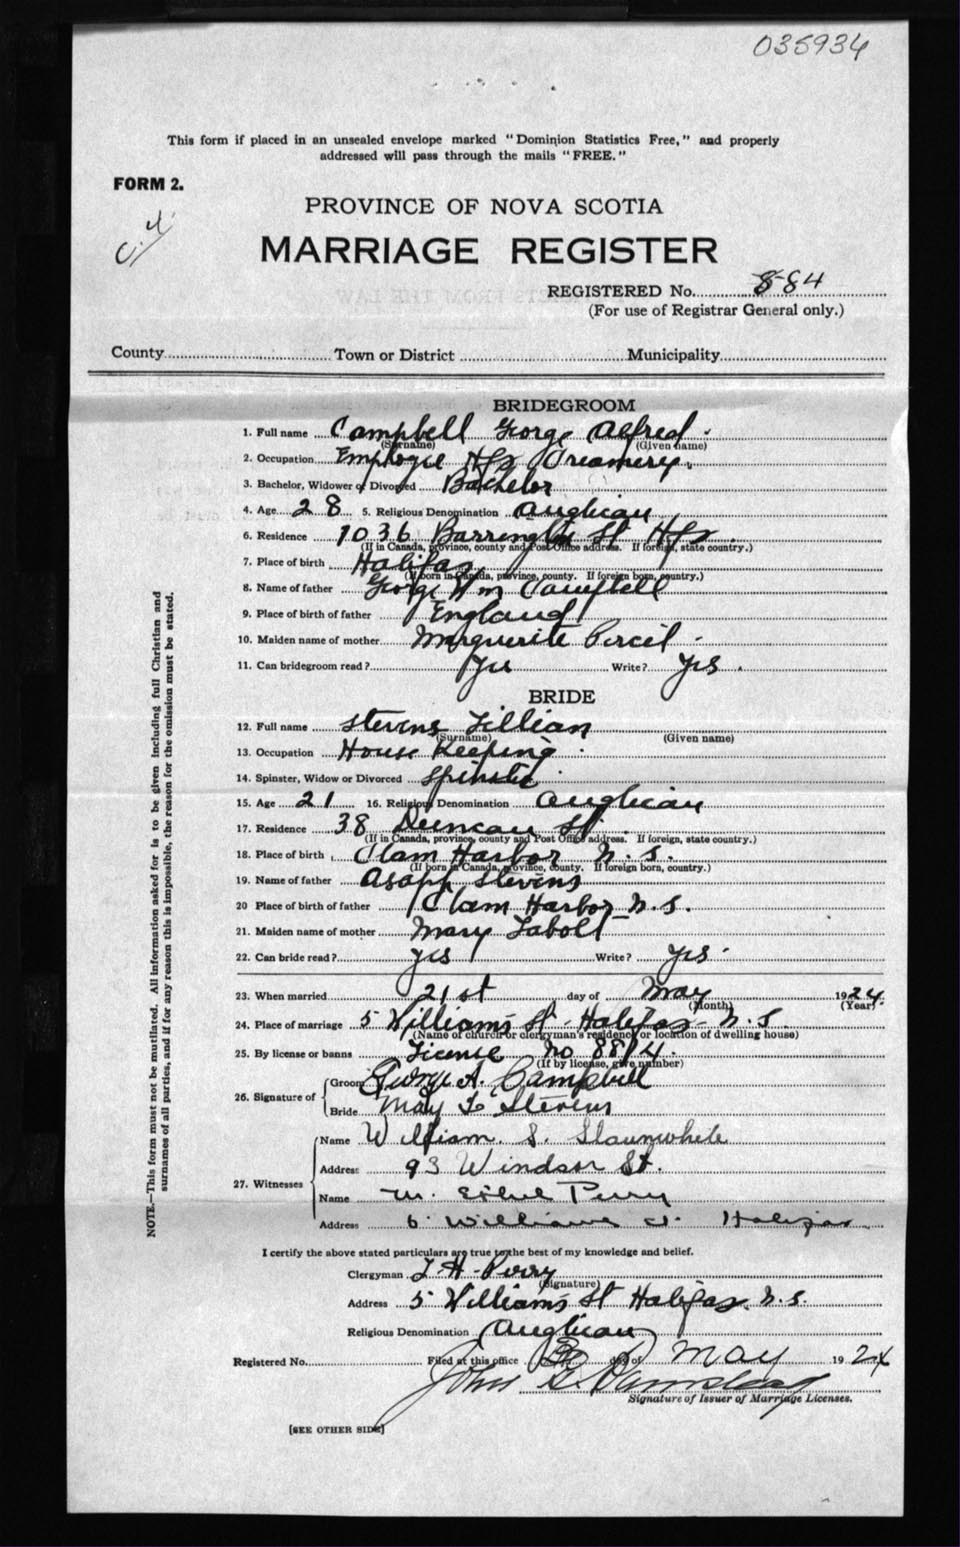 035934
This form if placed in an unsealed envelope marked "Dominion Statistics Free," and properly
addressed will pass through the mails "FREE."
FORM 2.
PROVINCE OF NOVA SCOTIA
MARRIAGE REGISTER
REGISTERED No. 884
(For use of Registrar General only.)
County Town or District Municipality
BRIDEGROOM
1. Full name Campbell George Alfred
(Surname) (Given name)
2. Occupation Employee Hfx Creamery.
3. Bachelor, Widower or Divorced Bachelor
4. Age 28 5. Religious Denomination Anglican
6. Residence 1036 Barrington St Hfx.
(If in Canada, province, county and Post Office address. If foreign, state country.)
7. Place of birth Halifax
(If born in Canada, province, county. If foreign born, country.)
8. Name of father George Wm Campbell
9. Place of birth of father England
10. Maiden name of mother Marguerite Purcil
11. Can bridegroom read? Yes Write? Yes.
BRIDE
12. Full name Stevens Lillian
(Surname) (Given name)
13. Occupation House Keeping
14. Spinster, Widow or Divorced Spinster
15. Age 21 16. Religious Denomination Anglican
17. Residence 38 Duncan St.
(If in Canada, province, county and Post Office address. If foreign, state country.)
18. Place of birth Clam Harbor N.S.
(If born in Canada, province, county. If foreign born, country.)
19. Name of father Asaph Stevens
20 Place of birth of father Clam Harbor N.S.
21. Maiden name of mother Mary Labolt
22. Can bride read? yes Write? yes
23. When married 21st day of May 1924
(Month) (Year)
24. Place of marriage 5 Williams St Halifax N.S.
(Name of church or clergyman's residence or location of dwelling house)
25. By license or banns License No 8814.
(If by license, give number)
26. Signature of Groom George A. Campbell
Bride May L Stevens
27. Witnesses Name William S. Slaunwhite
Address 93 Windsor St.
Name M. Ethel Perry
Address 6 Williams St. Halifax.
I certify the above stated particulars are true to the best of my knowledge and belief.
Clergyman Perry
(Signature)
Address 5 Williams St Halifax. N.S.
Religious Denomination Anglican
Registered No. Filed at this office day of May 1924
John
Signature of Issuer of Marriage Licenses.
[SEE OTHER SIDE]
NOTE.—This form must not be mutilated. All information asked for is to be given including full Christian and
surnames of all parties, and if for any reason this is impossible, the reason for the omission must be stated.